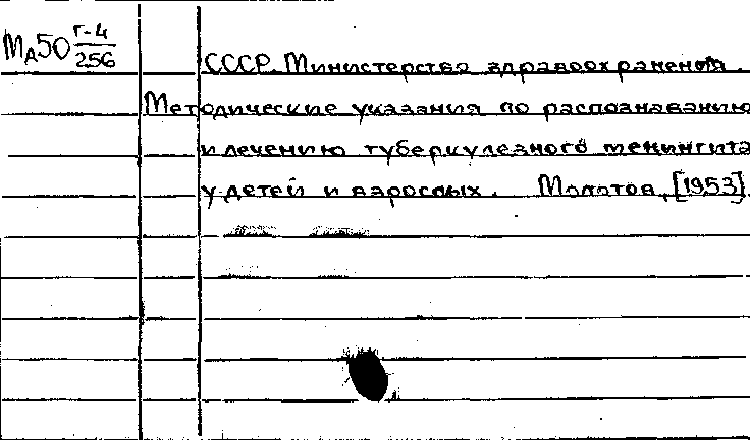 Мд50 Г-4/256
СССР. Министерство здравоохранения.
Методические указания по распознаванию
и лечению туберкулезного менингита
у детей и взрослых. Молотов, [1953]